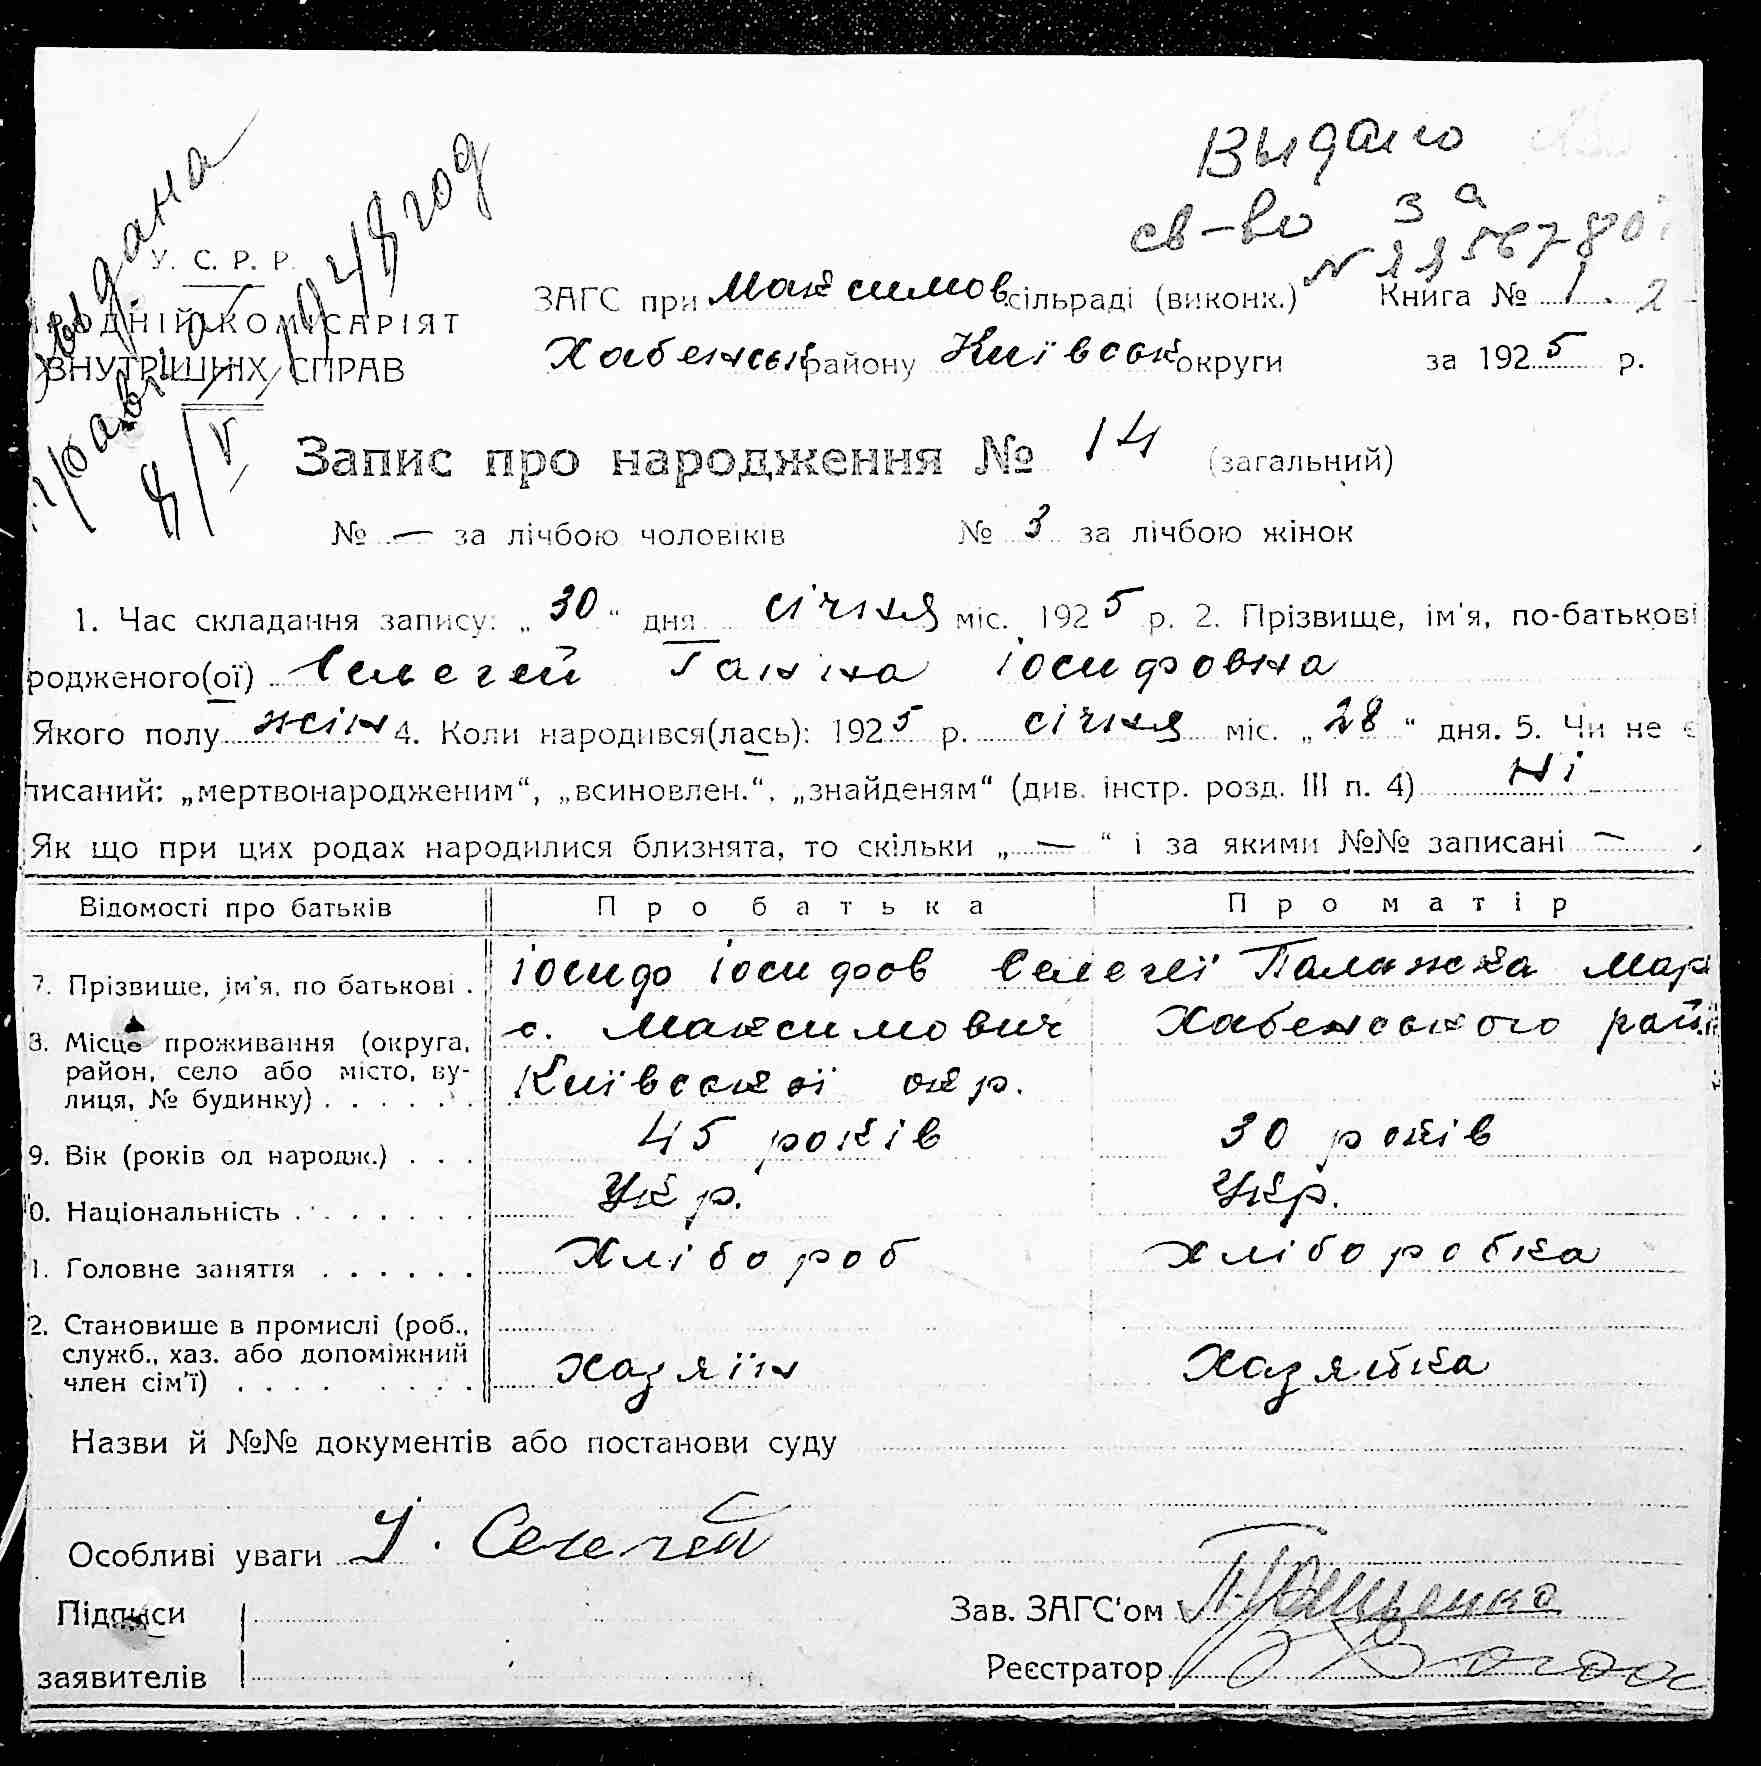 Выдано
св-во за
N 1156780
выдана
справка
8/V 1948 год
У. С. Р. Р.
РОДНІЙ КОМІСАРІЯТ
ВНУТРІШНІХ СПРАВ
ЗАГС при Максимов сільраді (виконк.) Книга № 1. 2
Хабенськ району Київськ округи за 1925 р.
Запис про народження № 14 (загальний)
№ — за лічбою чоловіків № 3 за лічбою жінок
1. Час складання запису: „30“ дня січня міс. 1925 р. 2. Прізвище, ім'я, по-батькові
родженого(ої) Селегей Ганна Іосифовна
Якого полу жін 4. Коли народився(лась): 1925 р. січня міс. „28“ дня. 5. Чи не є
писаний: „мертвонародженим“, „всиновлен.“, „знайденям“ (див. інстр. розд. III п. 4) Ні
Як що при цих родах народилися близнята, то скільки „—“ і за якими №№ записані —
Відомості про батьків Про батька Про матір
7. Прізвище, ім'я, по батькові . Іосиф Іосифов Селегеї Палажка Мар
8. Місце проживання (округа, район, село або місто, вулиця, № будинку) . . . . . . с. Максимович Хабенського рай
Київської окр.
9. Вік (років од народж.) . . . 45 років 30 років
0. Національність . . . . . . . Укр. Укр.
1. Головне заняття . . . . . . Хлібороб Хліборобка
2. Становище в промислі (роб., служб., хаз. або допоміжний член сім'ї) . . . . . . . . Хазяїн Хазяйка
Назви й №№ документів або постанови суду
Особливі уваги І. Селегей
Підписи Зав. ЗАГС'ом
заявителів Реєстратор